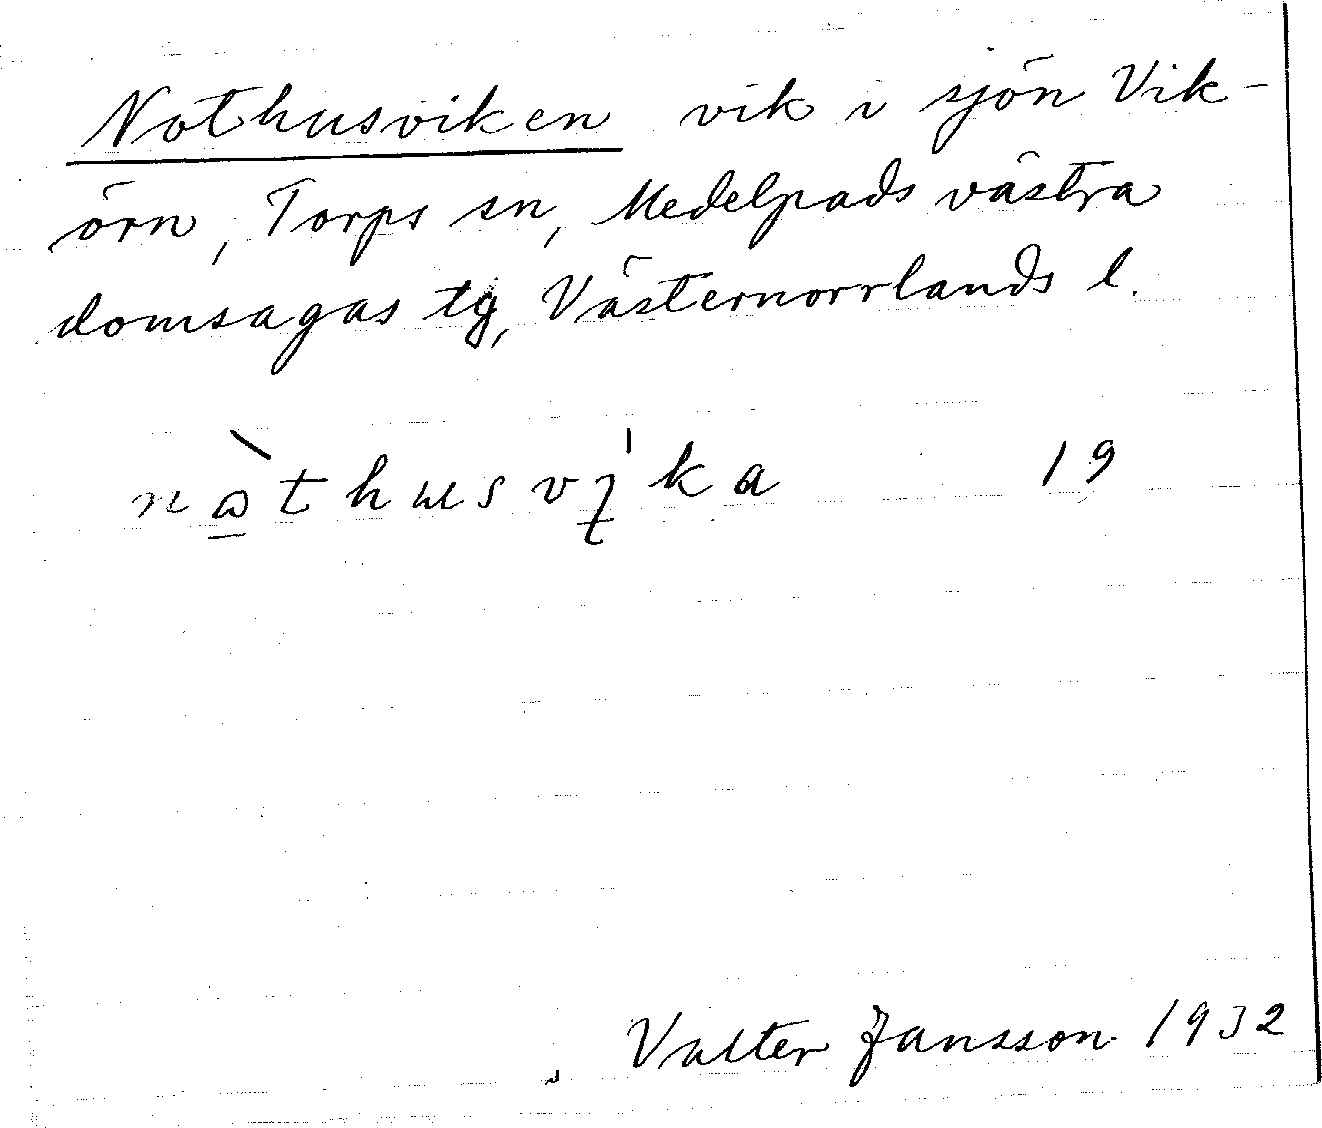 Nothusviken vik i sjön Vik-
örn, Torps sn, Medelpads västra
domsagas tg, Västernorrlands l.
nòthusvı̨̍ka 19
Valter Jansson 1932